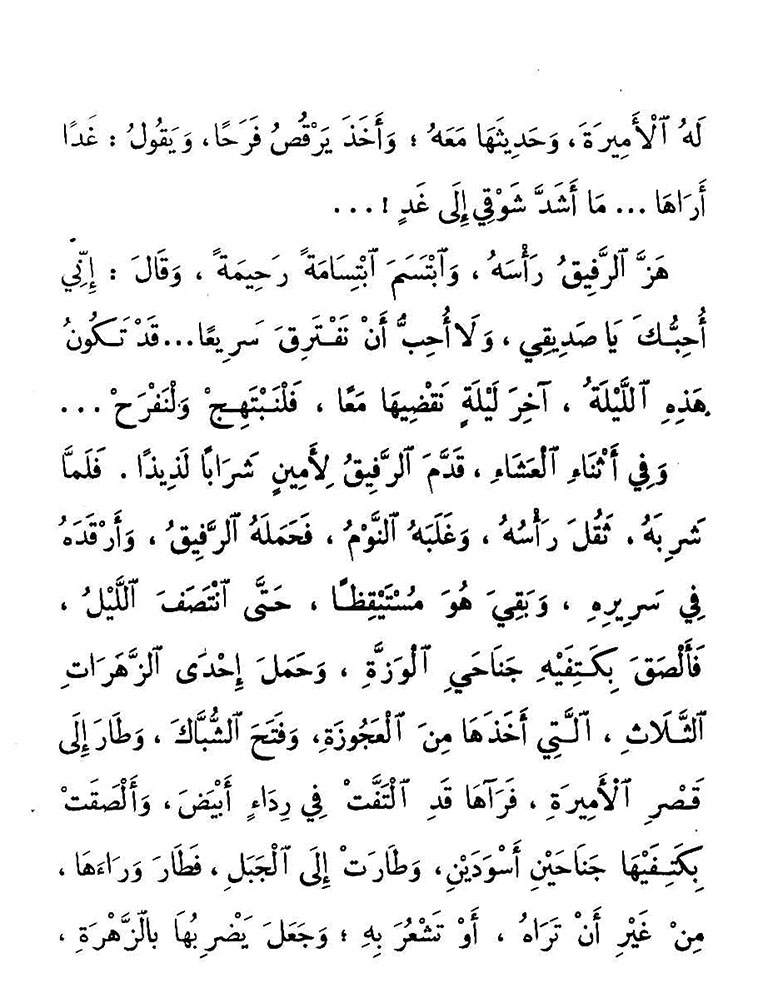 لَهُ ٱلْأَمِيرَةَ، وَحَدِيثَهَا مَعَهُ ؛ وَأَخَذَ يَرْقُصُ فَرَحًا، وَيَقُولُ : غَدًا
أَرَاهَا ... مَا أَشَدَّ شَوْقِي إِلَى غَدٍ ! ...
هَزَّ ٱلرَّفِيقُ رَأْسَهُ ، وَٱبْتَسَمَ ٱبْتِسَامَةً رَحِيمَةً ، وَقَالَ : إِنِّي
أُحِبُّكَ يَا صَدِيقِي ، وَلَا أُحِبُّ أَنْ نَفْتَرِقَ سَرِيعًا... قَدْ تَكُونُ
هَذِهِ ٱللَّيْلَةُ ، آخِرَ لَيْلَةٍ نَقْضِيهَا مَعًا ، فَلْنَبْتَهِجْ وَلْنَفْرَحْ ...
وَفِي أَثْنَاءِ ٱلْعَشَاءِ ، قَدَّمَ ٱلرَّفِيقُ لِأَمِينٍ شَرَابًا لَذِيذًا . فَلَمَّا
شَرِبَهُ ، ثَقُلَ رَأْسُهُ ، وَغَلَبَهُ ٱلنَّوْمُ ، فَحَمَلَهُ ٱلرَّفِيقُ ، وَأَرْقَدَهُ
فِي سَرِيرِهِ ، وَبَقِيَ هُوَ مُسْتَيْقِظًا ، حَتَّى ٱنْتَصَفَ ٱللَّيْلُ ،
فَأَلْصَقَ بِكَتِفَيْهِ جَنَاحَيِ ٱلْوَزَّةِ ، وَحَمَلَ إِحْدَى ٱلزَّهَرَاتِ
ٱلثَّلَاثِ ، ٱلَّتِي أَخَذَهَا مِنَ ٱلْعَجُوزَةِ، وَفَتَحَ ٱلشُّبَّاكَ ، وَطَارَ إِلَى
قَصْرِ ٱلْأَمِيرَةِ ، فَرَآهَا قَدِ ٱلْتَفَّتْ فِي رِدَاءٍ أَبْيَضَ ، وَأَلْصَقَتْ
بِكَتِفَيْهَا جَنَاحَيْنِ أَسْوَدَيْنِ، وَطَارَتْ إِلَى ٱلْجَبَلِ ، فَطَارَ وَرَاءَهَا ،
مِنْ غَيْرِ أَنْ تَرَاهُ ، أَوْ تَشْعُرَ بِهِ ؛ وَجَعَلَ يَضْرِبُهَا بِٱلزَّهْرَةِ ،